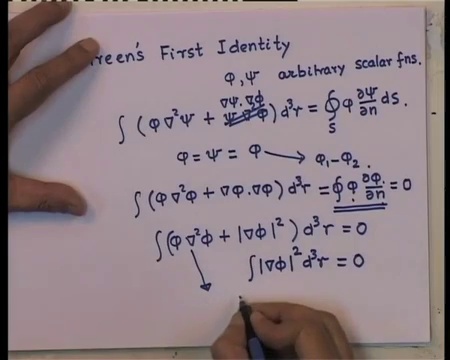 reen's First Identity
φ, ψ arbitrary scalar fns.
∇ψ·∇φ
∫ (φ∇²ψ + ψ·∇φ) d³r = ∮_S φ ∂ψ/∂n dS.
φ = ψ = φ → φ₁-φ₂.
∫ (φ∇²φ + ∇φ·∇φ) d³r = ∮ φ ∂φ/∂n = 0
∫(φ∇²φ + |∇φ|²) d³r = 0
∫|∇φ|² d³r = 0